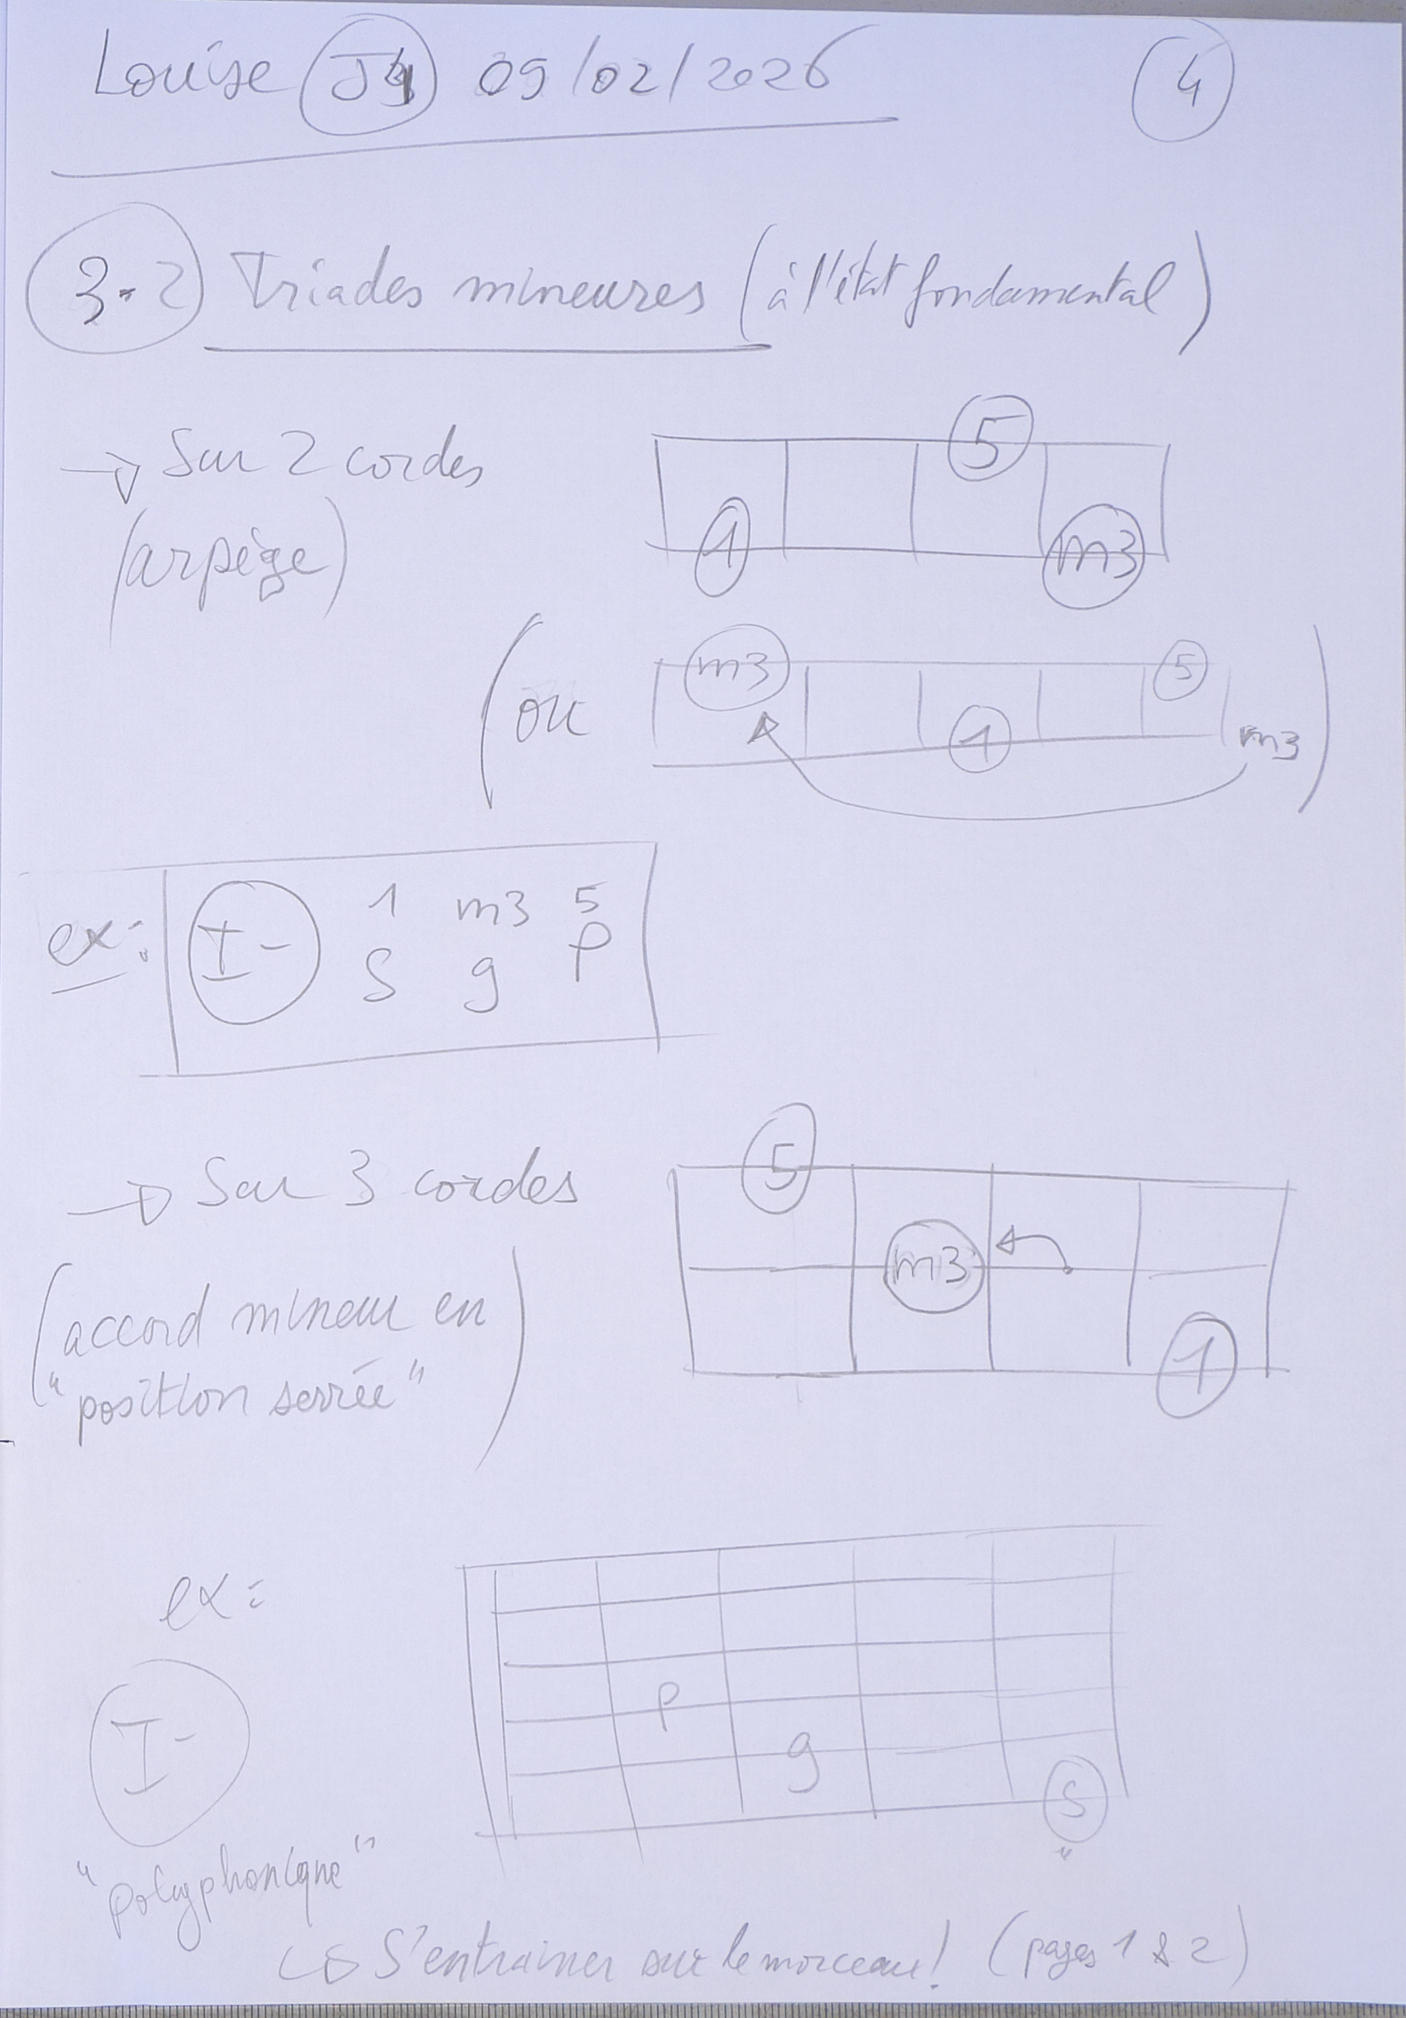 Louise J4 09/02/2026 4
3.2 Triades mineures (à l'état fondamental)
→ Sur 2 cordes
(arpège)
5
1 m3
(ou m3 1 5 m3)
ex: I- 1 m3 5
S g p
→ Sur 3 cordes
(accord mineur en
"position serrée")
5
m3
1
ex:
p
I- g
S
"
"polyphonique"
↳ S'entrainer sur le morceau! (pages 1 & 2)